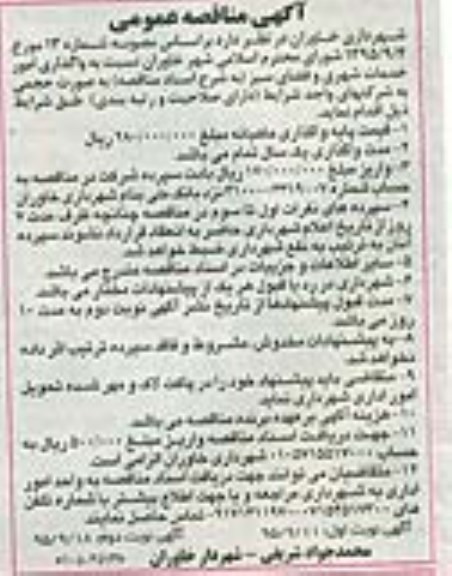 آگهی مناقصه عمومی
شهرداری خاوران در نظر دارد براساس مصوبه شماره ۱۳ مورخ
۱۳۹۵/۹/۲ شورای محترم اسلامی شهر خاوران نسبت به واگذاری امور
خدمات شهری و فضای سبز (به شرح اسناد مناقصه) به صورت حجمی
به شرکتهای واجد شرایط (دارای صلاحیت و رتبه بندی) طبق شرایط
ذیل اقدام نماید.
۱- قیمت پایه واگذاری ماهیانه مبلغ ریال
۲- مدت واگذاری یک سال تمام می باشد.
۳- واریز مبلغ ریال بابت سپرده شرکت در مناقصه به
حساب شماره نزد بانک ملی بنام شهرداری خاوران
۴- سپرده های نفرات اول تا سوم در مناقصه چنانچه ظرف مدت ۷
روز از تاریخ اعلام شهرداری حاضر به انعقاد قرارداد نشوند سپرده
آنان به ترتیب به نفع شهرداری ضبط خواهد شد.
۵- سایر اطلاعات و جزییات در اسناد مناقصه مندرج می باشد.
۶- شهرداری در رد یا قبول هر یک از پیشنهادات مختار می باشد.
۷- مدت قبول پیشنهادها از تاریخ نشر آگهی نوبت دوم به مدت ۱۰
روز می باشد.
۸- به پیشنهادات مخدوش، مشروط و فاقد سپرده ترتیب اثر داده
نخواهد شد.
۹- متقاضی باید پیشنهاد خود را در پاکت لاک و مهر شده تحویل
امور اداری شهرداری نماید.
۱۰- هزینه آگهی بر عهده برنده مناقصه می باشد.
۱۱- جهت دریافت اسناد مناقصه واریز مبلغ ۵۰۰/۰۰۰ ریال به
حساب شهرداری خاوران الزامی است.
۱۲- متقاضیان می توانند جهت دریافت اسناد مناقصه به واحد امور
اداری به شهرداری مراجعه و یا جهت اطلاع بیشتر با شماره تلفن
های تماس حاصل نمایند.
آگهی نوبت اول: ۹۵/۹/۱۱ آگهی نوبت دوم: ۹۵/۹/۱۸
محمدجواد شریفی - شهردار خاوران